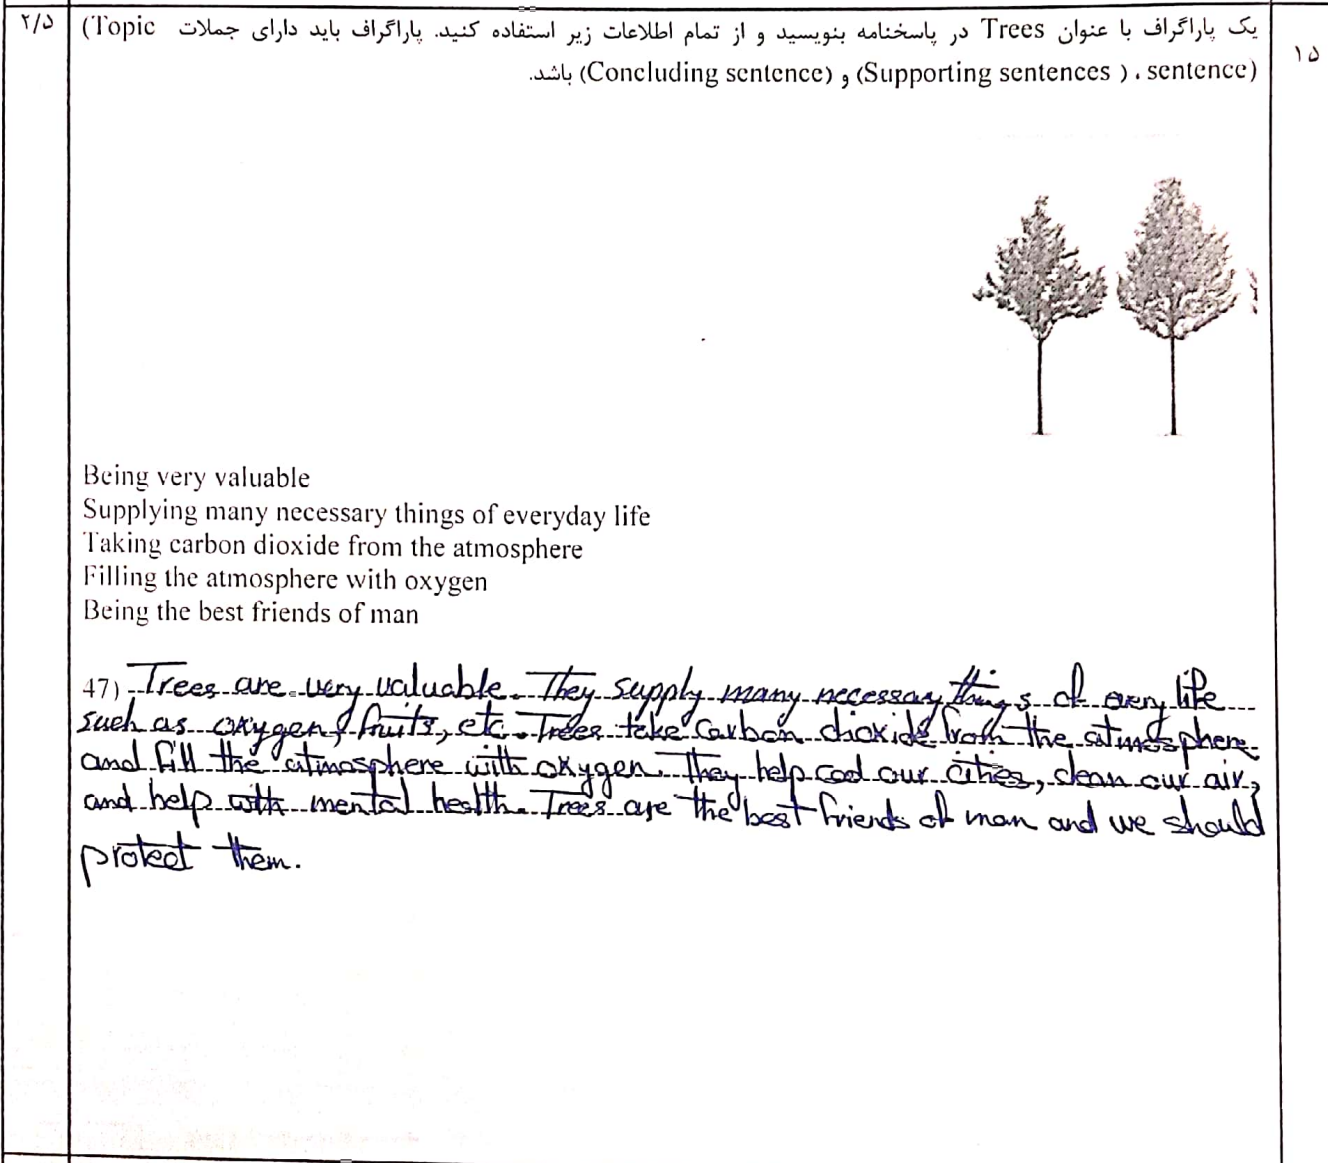 ۱۵
یک پاراگراف با عنوان Trees در پاسخنامه بنویسید و از تمام اطلاعات زیر استفاده کنید. پاراگراف باید دارای جملات (Topic
sentence) ، (Supporting sentences) و (Concluding sentence) باشد.
۲/۵
Being very valuable
Supplying many necessary things of everyday life
Taking carbon dioxide from the atmosphere
Filling the atmosphere with oxygen
Being the best friends of man
47) Trees are very valuable. They supply many necessary things of every life
such as oxygen, fruits, etc. Trees take carbon dioxide from the atmosphere
and fill the atmosphere with oxygen. They help cool our cities, clean our air,
and help with mental health. Trees are the best friends of man and we should
protect them.